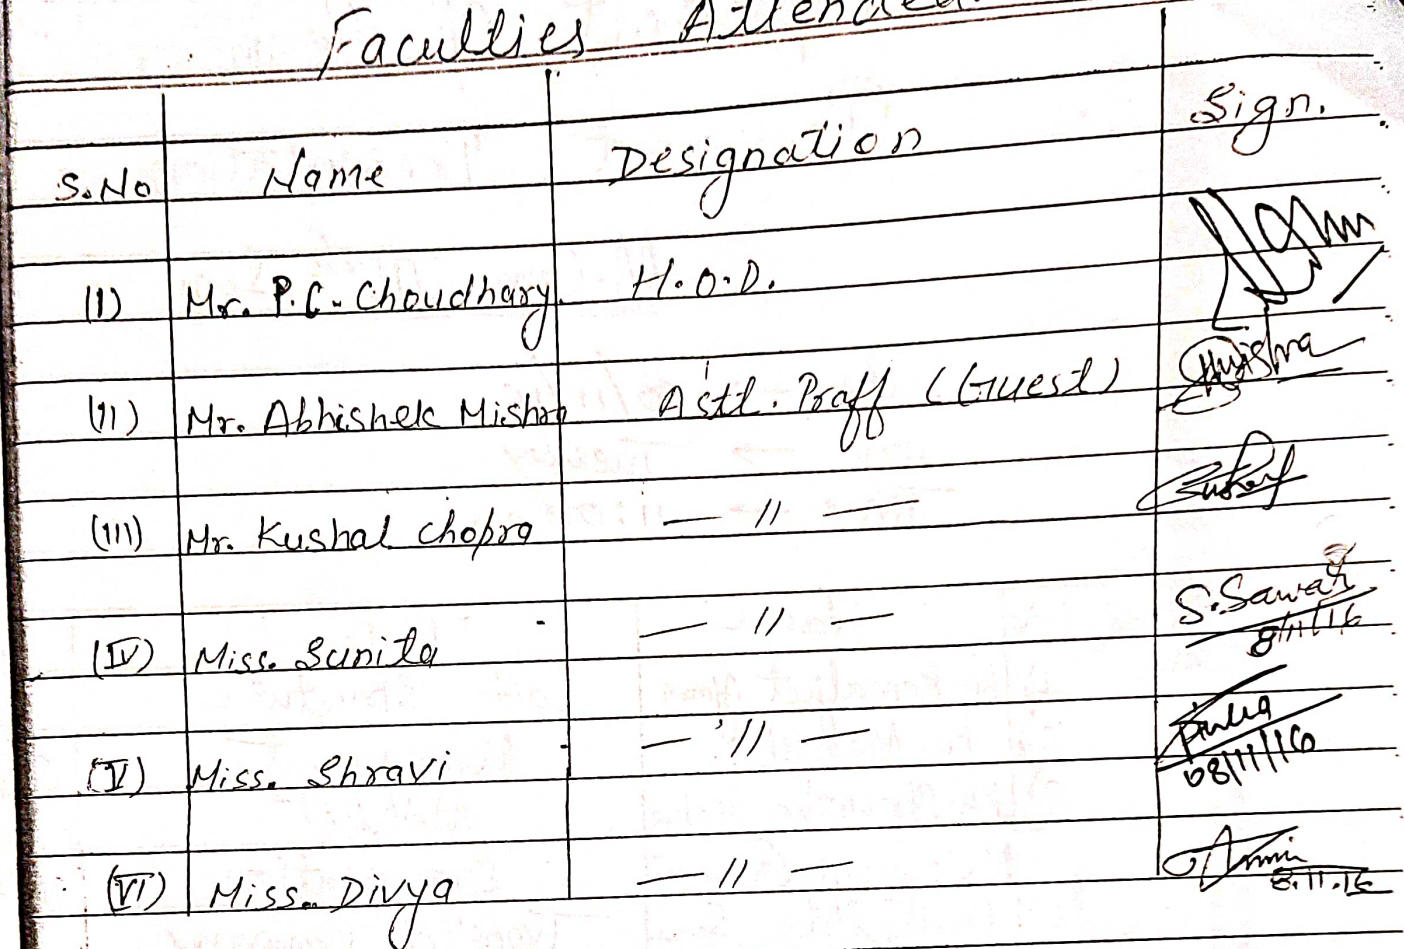 Faculties Attended
S.No Name Designation Sign.
(I) Mr. P.C. Choudhary H.O.D.
(II) Mr. Abhishek Mishra Astt. Proff (Guest) Mishra
(III) Mr. Kushal chopra — 11 —
(IV) Miss. Sunita — 11 — S.Sawan 8/11/16
(V) Miss. Shravi — 11 — 08/11/16
(VI) Miss. Divya — 11 — 8.11.16